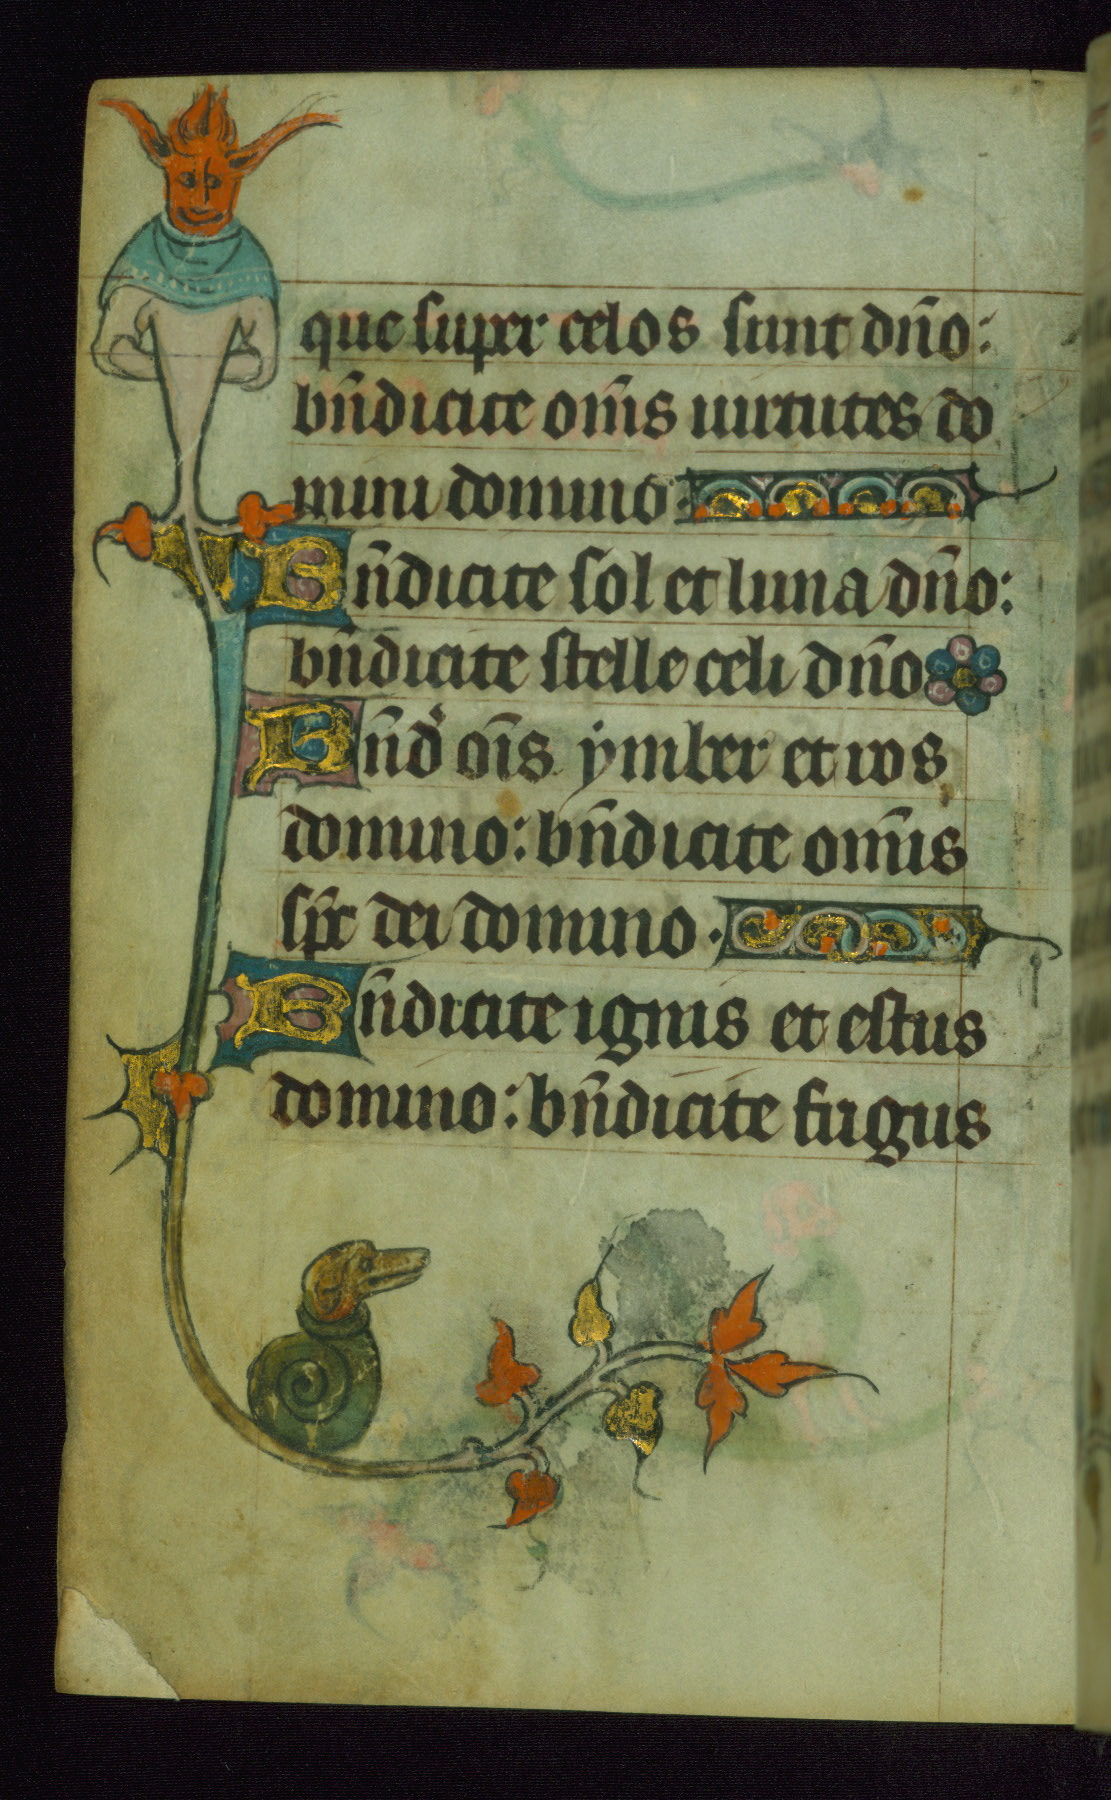 que super celos sunt dn̄o:
bn̄dicite om̄s uirtutes do
mini domino
Bn̄dicite sol et luna dn̄o:
bn̄dicite stelle celi dn̄o
Bn̄d̾ oīs ẏmber et ros
domino: bn̄dicite om̄is
sp̄c dei domino.
Bn̄dicite ignis et estus
domino: bn̄dicite frigus